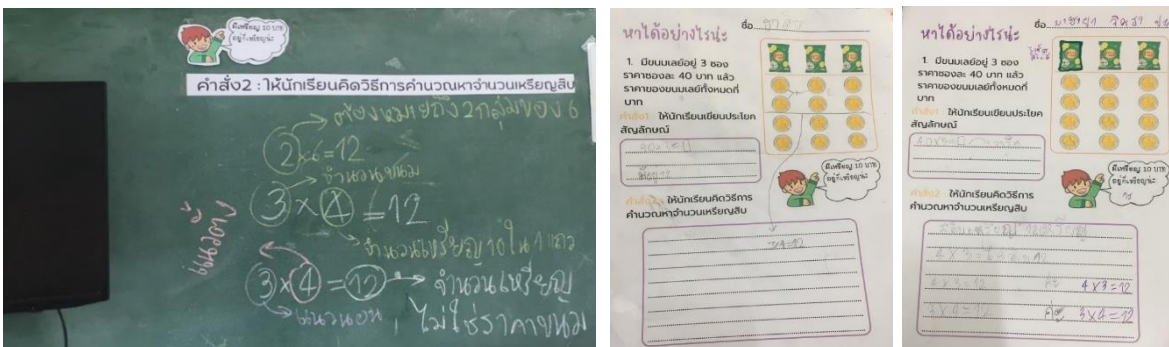 มีเหรียญ 10 บาท
อยู่กี่เหรียญน่ะ
คำสั่ง2 : ให้นักเรียนคิดวิธีการคำนวณหาจำนวนเหรียญสิบ
ต้องหมายถึง 2 กลุ่มของ 6
2×6=12
จำนวนขนม
3×4=12
จำนวนเหรียญ 10 ใน 1 แถว
แนวตั้ง
3×4=12 → จำนวนเหรียญ
แนวนอน ไม่ใช่ราคาขนม
หาได้อย่างไรน่ะ
ชื่อ
1. มีขนมเลย์อยู่ 3 ซอง
ราคาซองละ 40 บาท แล้ว
ราคาของขนมเลย์ทั้งหมดกี่
บาท
คำสั่ง1 ให้นักเรียนเขียนประโยค
สัญลักษณ์
มีเหรียญ 10 บาท
อยู่กี่เหรียญน่ะ
คำสั่ง2 ให้นักเรียนคิดวิธีการ
คำนวณหาจำนวนเหรียญสิบ
3×4=12
หาได้อย่างไรน่ะ
ชื่อ
1. มีขนมเลย์อยู่ 3 ซอง
ราคาซองละ 40 บาท แล้ว
ราคาของขนมเลย์ทั้งหมดกี่
บาท
คำสั่ง1 ให้นักเรียนเขียนประโยค
สัญลักษณ์
มีเหรียญ 10 บาท
อยู่กี่เหรียญน่ะ
คำสั่ง2 ให้นักเรียนคิดวิธีการ
คำนวณหาจำนวนเหรียญสิบ
4×3=12 4×3=12
3×4=12 3×4=12